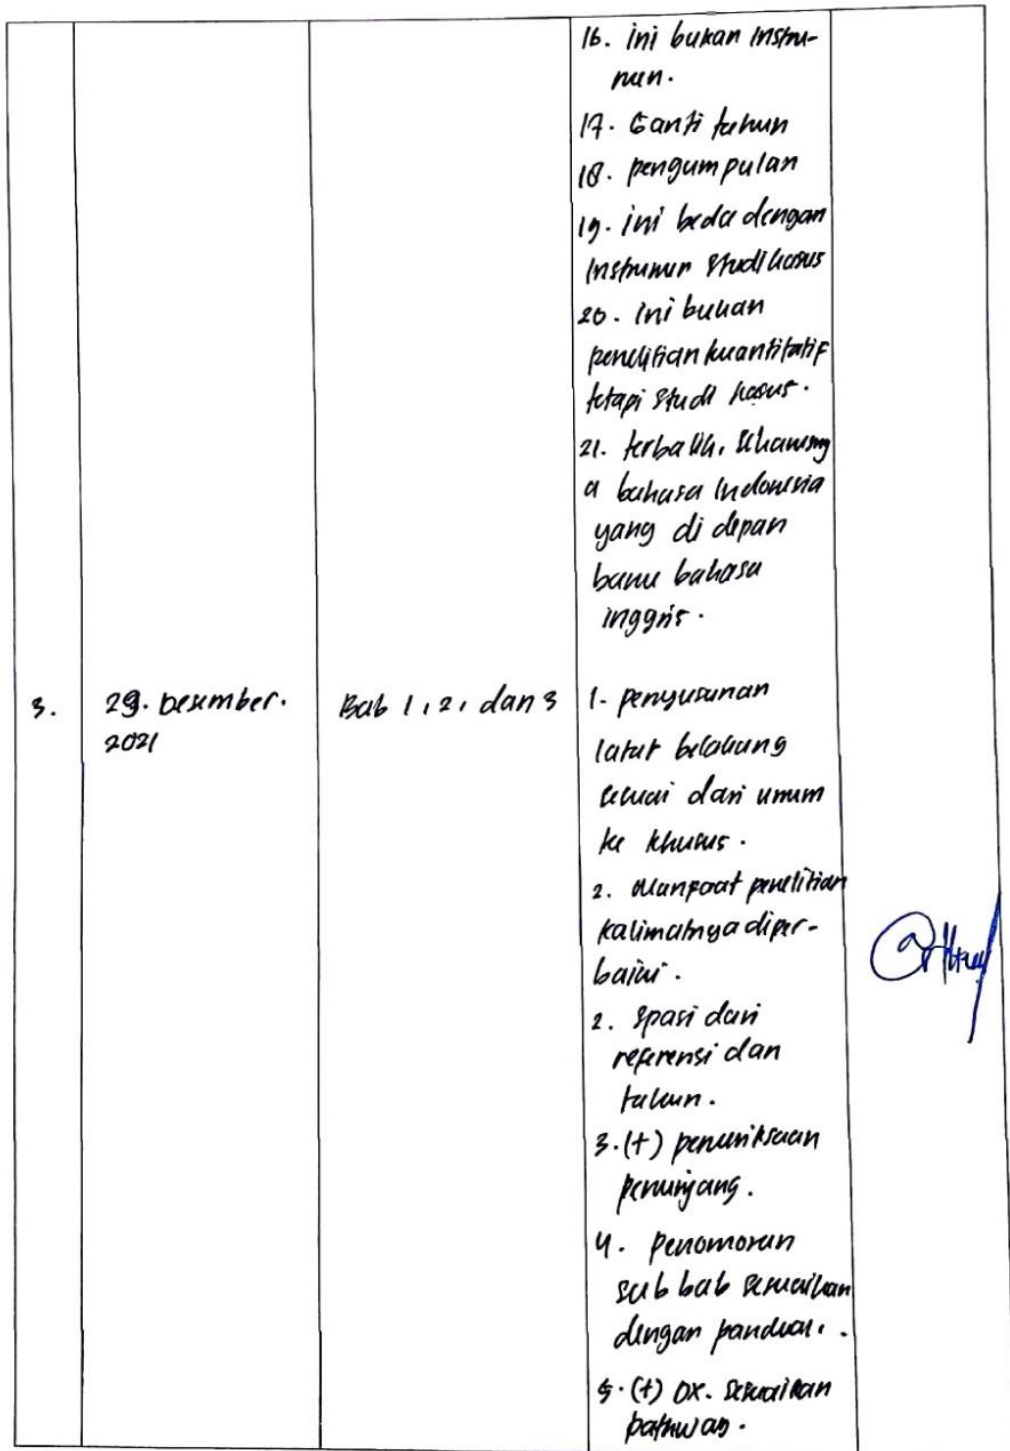 16. ini bukan instru-
men.
17. Ganti tahun
18. pengumpulan
19. ini beda dengan
Instrumen Studi kasus
20. ini bukan
penelitian kuantitatif
tetapi studi kasus.
21. terbalik, seharusny
a bahasa Indonesia
yang di depan
baru bahasa
inggris.
3. 29. Desember. Bab 1, 2, dan 3 1. penyusunan
2021
latar belakang
sesuai dari umum
ke khusus.
2. Manfaat penelitian
kalimatnya diper-
baiki.
2. Spasi dari
referensi dan
tahun.
3. (+) pemeriksaan
penunjang.
4. Penomoran
sub bab sesuaikan
dengan panduan.
5. (+) DX. sesuaikan
pathway.